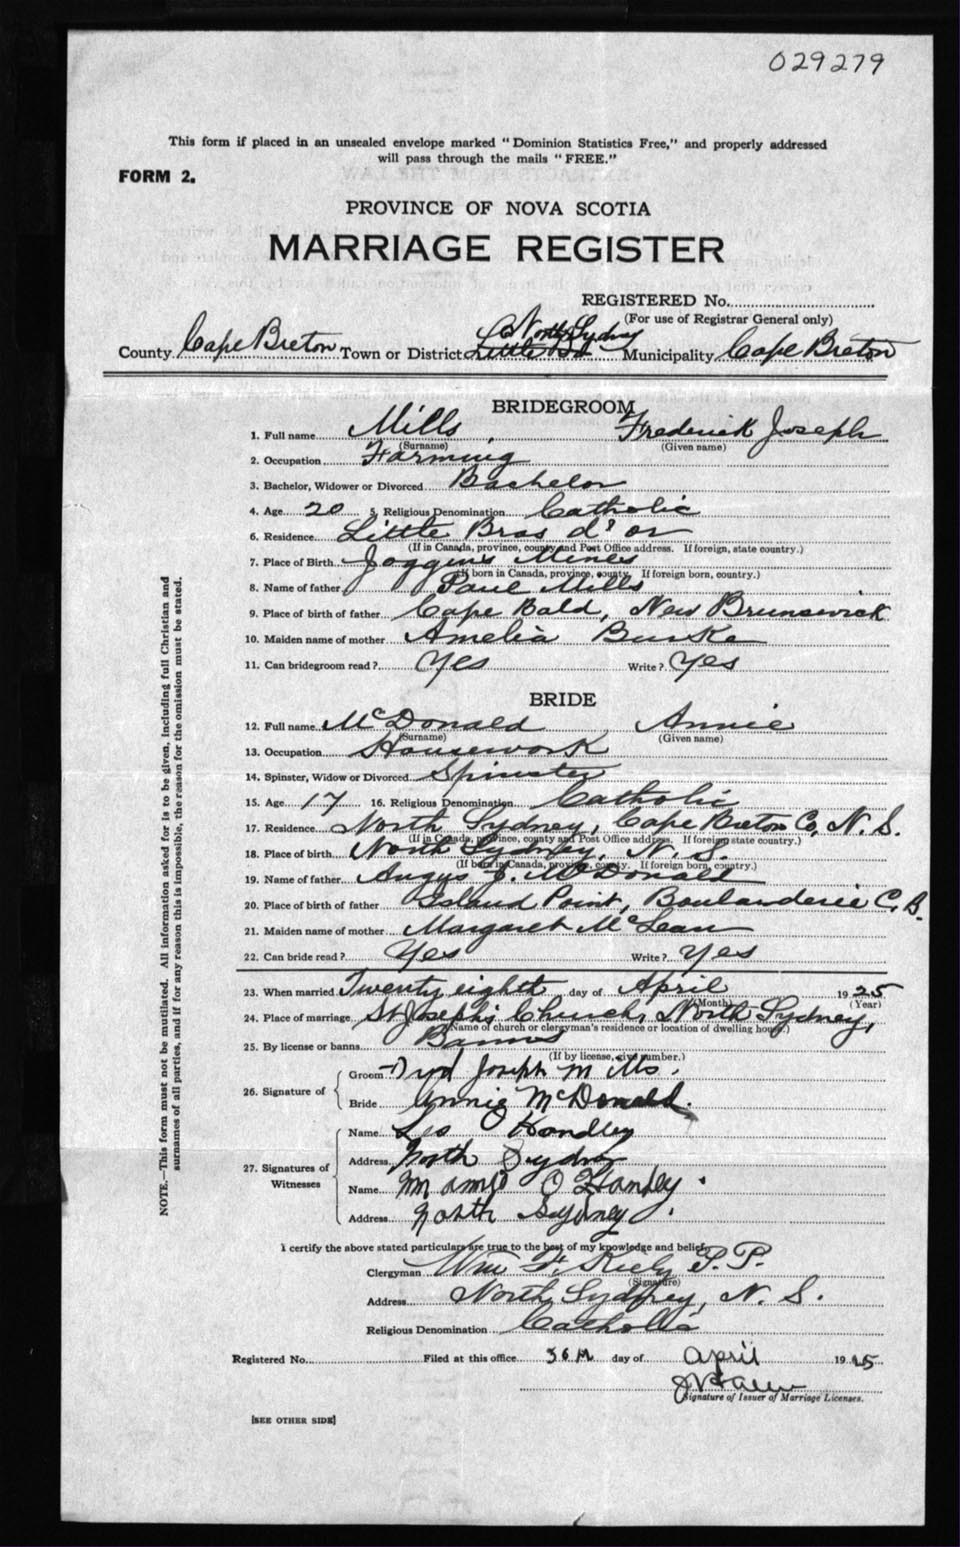 029279
This form if placed in an unsealed envelope marked "Dominion Statistics Free," and properly addressed
will pass through the mails "FREE."
FORM 2.
PROVINCE OF NOVA SCOTIA
MARRIAGE REGISTER
REGISTERED No.
(For use of Registrar General only)
North Sydney
County Cape Breton Town or District Little Municipality Cape Breton
BRIDEGROOM
1. Full name Mills Frederick Joseph
(Surname) (Given name)
2. Occupation Farming
3. Bachelor, Widower or Divorced Bachelor
4. Age 20 5. Religious Denomination Catholic
6. Residence Little Bras d'or
(If in Canada, province, county and Post Office address. If foreign, state country.)
7. Place of Birth Joggins Mines
(If born in Canada, province, county. If foreign born, country.)
8. Name of father Paul Mills
9. Place of birth of father Cape Bald, New Brunswick
10. Maiden name of mother Amelia Burke
11. Can bridegroom read? Yes Write? Yes
BRIDE
12. Full name McDonald Annie
(Surname) (Given name)
13. Occupation Housework
14. Spinster, Widow or Divorced Spinster
15. Age 17 16. Religious Denomination Catholic
17. Residence North Sydney, Cape Breton Co, N. S.
(If in Canada, province, county and Post Office address. If foreign state country.)
18. Place of birth North Sydney, N. S.
(If born in Canada, province, county. If foreign born, country.)
19. Name of father Angus J. McDonald
20. Place of birth of father Island Point, Boulanderie C. B.
21. Maiden name of mother Margaret McLean
22. Can bride read? Yes Write? Yes
23. When married Twenty eighth day of April 1925
(Month) (Year)
24. Place of marriage St Joseph's Church, North Sydney,
(Name of church or clergyman's residence or location of dwelling house.)
25. By license or banns Banns
(If by license, give number.)
26. Signature of
Groom Fred Joseph Mills.
Bride Annie McDonald.
27. Signatures of Witnesses
Name Leo Handley
Address North Sydney
Name Mamie O Handley
Address North Sydney
I certify the above stated particulars are true to the best of my knowledge and belief,
Clergyman Wm F. Kiely P. P.
(Signature)
Address North Sydney, N. S.
Religious Denomination Catholic
Registered No. Filed at this office 30th day of April 1925
Signature of Issuer of Marriage Licenses.
[SEE OTHER SIDE]
NOTE.—This form must not be mutilated. All information asked for is to be given, including full Christian and
surnames of all parties, and if for any reason this is impossible, the reason for the omission must be stated.